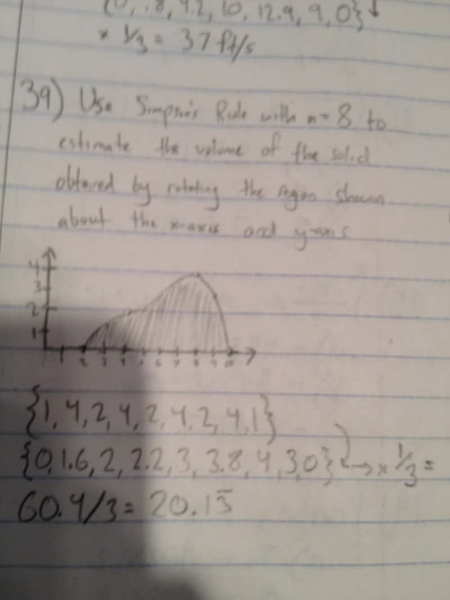 {0, 1.8, 9.2, 10, 12.9, 9, 0}
× 1/3 = 37 ft/s
39) Use Simpson's Rule with n=8 to
estimate the volume of the solid
obtained by rotating the region shown
about the x-axis and y-axis
4
3
2
1
1 2 3 4 5 6 7 8 9 10
{1,4,2,4,2,4,2,4,1}
{0,1.6,2,2.2,3,3.8,4,3,0} → × 1/3 =
60.4/3 = 20.13